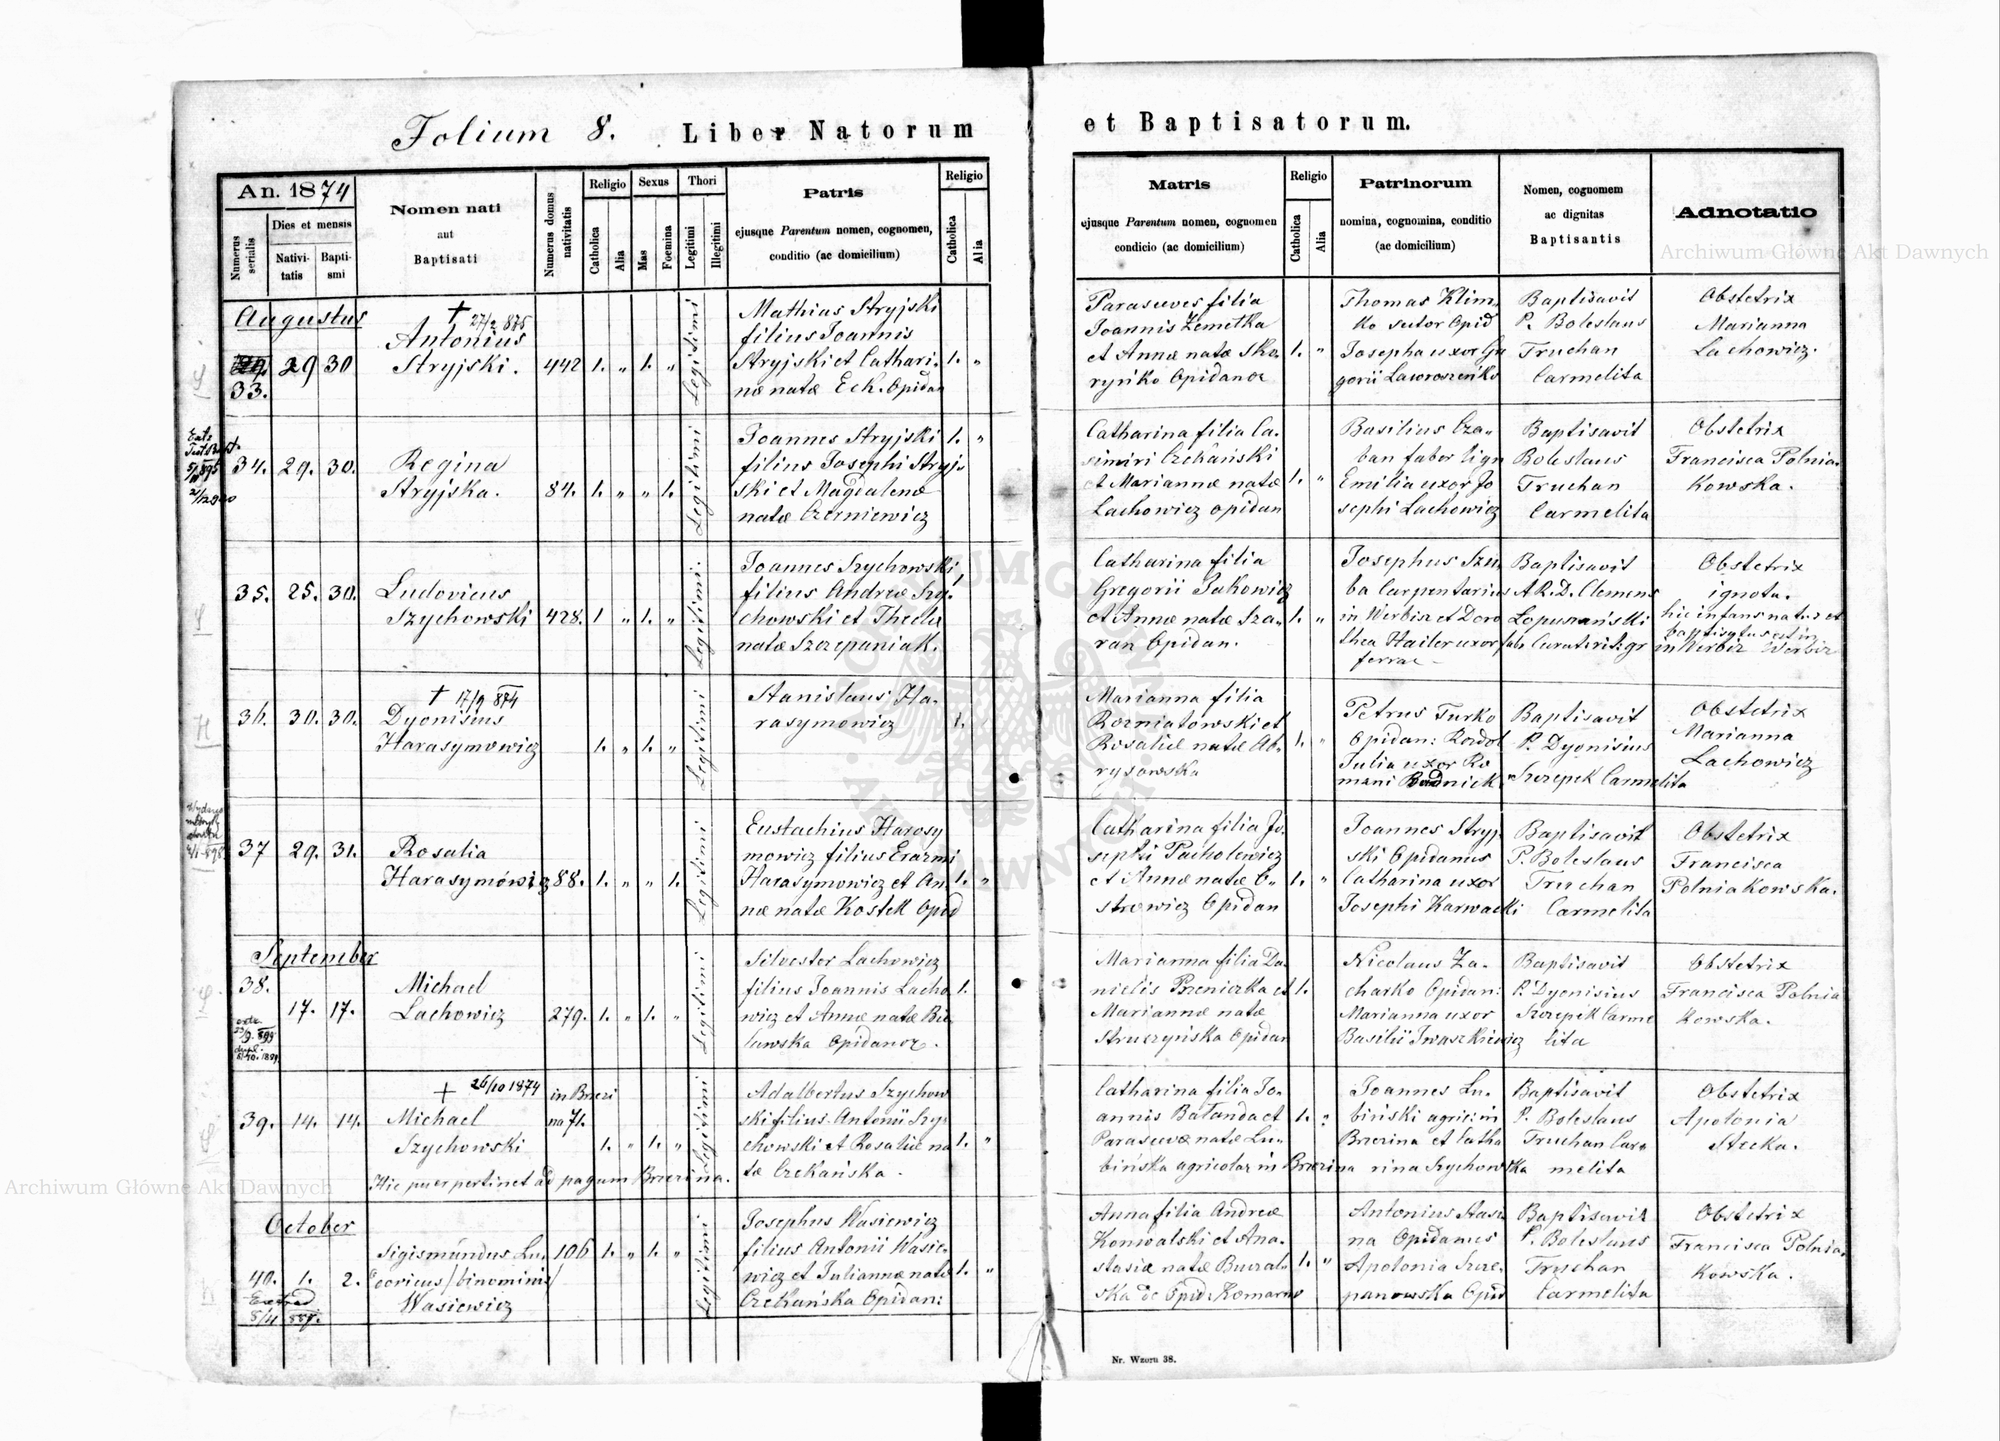 Folium 8. Liber Natorum et Baptisatorum.
An. 1874
Numerus serialis
Dies et mensis
Nativitatis
Baptismi
Nomen nati
aut
Baptisati
Numerus domus nativitatis
Religio
Catholica
Alia
Sexus
Mas
Foemina
Thori
Legitimi
Illegitimi
Patris
ejusque Parentum nomen, cognomen,
conditio (ac domicilium)
Religio
Catholica
Alia
Matris
ejusque Parentum nomen, cognomen
condicio (ac domicilium)
Religio
Catholica
Alia
Patrinorum
nomina, cognomina, conditio
(ac domicilium)
Nomen, cognomem
ac dignitas
Baptisantis
Adnotatio
Archiwum Główne Akt Dawnych
Augustus
33.
29
30
† 27/2 875
Antonius
Stryjski.
442
1. „ 1. „
Legitimi
Mathius Stryjski
filius Joannis
Stryjski et Cathari-
næ natæ Eck. Opidan
1. „
Parasceves filia
Joannis Zemetka
et Annæ natæ Sko-
ryńko Opidanor
1. „
Thomas Klim
ko sutor Opid
Josepha uxor Gu
gorii Laworszeńko
Baptisavit
P. Boleslaus
Truchan
Carmelita
Obstetrix
Marianna
Lachowicz.
34.
29.
30.
Regina
Stryjska.
84.
1. „ „ 1.
Legitimi
Joannes Stryjski
filius Josephi Stryj
ski et Magdalenæ
natæ Czerniewicz
1. „
Catharina filia Ca-
simiri Czekański
et Mariannæ natæ
Lachowicz opidan
1. „
Basilius Cza-
ban faber lign
Emilia uxor Jo
sephi Lachowicz
Baptisavit
Boleslaus
Truchan
Carmelita
Obstetrix
Francisca Polnia-
kowska.
35.
25.
30.
Ludovicus
Szychowski
428.
1 „ 1. „
Legitimi:
Joannes Szychowski
filius Andreæ Szy-
chowski et Theclæ
natæ Szczepaniak.
1.
Catharina filia
Gregorii Jakowicz
et Annæ natæ Sza-
ran Opidan.
1. „
Josephus Szu
ba Carpentarius
in Werbiz et Doro
thea Hailer uxor fab
ferrar
Baptisavit
A R. D. Clemens
Lopuszański
Curat: rit: gr
Obstetrix
ignota.
hic infans natus et
baptisatus est in
Werbiz
36.
30.
30.
† 17/9 874
Dyonisius
Harasymowicz
1. „ 1. „
Legitimi
Stanislaus Ha-
rasymowicz
1.
Marianna filia
Rozniatowski et
Rosaliæ natæ Ab-
rysowska
1. „
Petrus Turko
Opidan:
Julia uxor Ro
mani Budnick
Baptisavit
P. Dyonisius
Szczepek Carmelita
Obstetrix
Marianna
Lachowicz
37
29.
31.
Rosalia
Harasymówicz
88.
1. „ „ 1.
Legitimi
Eustachius Harasy
mowicz filius Erazmi
Harasymowicz et An
næ natæ Kostek Opid
1. „
Catharina filia Jo-
sephi Pacholewicz
et Annæ natæ O-
strowicz Opidan
1. „
Joannes Stryj
ski Opidanus
Catharina uxor
Josephi Karwacki
Baptisavit
P. Boleslaus
Truchan
Carmelita
Obstetrix
Francisca
Polniakowska.
September
38.
17.
17.
Michael
Lachowicz
279.
1. „ 1. „
Legitimi
Silvester Lachowicz
filius Joannis Lacho
wicz et Annæ natæ Bie
lawska Opidanor.
1.
Marianna filia Da-
nielis Pszeniczka et
Mariannæ natæ
Struczyńska Opidan
1.
Nicolaus Za-
charko Opidan:
Marianna uxor
Basilii Iwaszkiewicz
Baptisavit
P. Dyonisius
Szczepek Carme
lita
Obstetrix
Francisca Polnia
kowska.
39.
14.
14.
† 26/10 1874
Michael
Szychowski
in Brzezi
na 71.
1. „ 1. „
Legitimi
Hic puer pertinet ad pagum Brzezina.
Adalbertus Szychow
ski filius Antonii Szy-
chowski et Rosaliæ na
tæ Czekańska.
1. „
Catharina filia Jo-
annis Bałanda et
Parascevæ natæ Lu-
bińska agricolar in Brzezina
1. „
Joannes Lu-
biński agric: in
Brzezina et Catha
rina Szychowska
Baptisavit
P. Boleslaus
Truchan Car-
melita
Obstetrix
Apolonia
Stecka.
October
40.
1.
2.
Sigismundus Lu-
dovicus /binominis/
Wasiewicz
106
1. „ 1. „
Legitimi
Josephus Wasiewicz
filius Antonii Wasie-
wicz et Juliannæ natæ
Czekańska Opidan:
1. „
Anna filia Andreæ
Konwalski et Ana-
stasiæ natæ Buczal-
ska de Opid. Komarno
1. „
Antonius Stasi
na Opidanus
Apolonia Szcze-
panowska Opid
Baptisavit
P. Boleslaus
Truchan
Carmelita
Obstetrix
Francisca Polnia-
kowska.
Archiwum Główne Akt Dawnych
Nr. Wzoru 38.